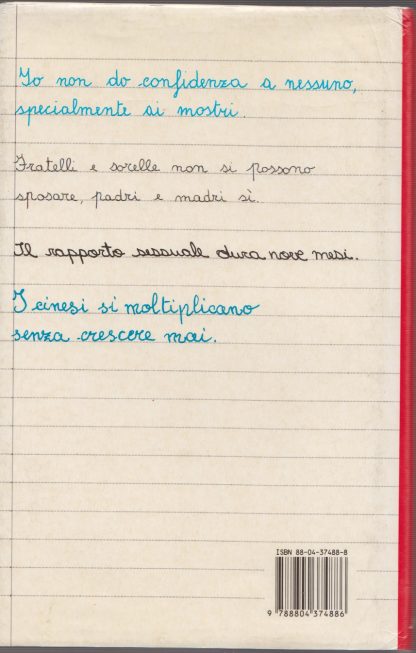 Io non do confidenza a nessuno,
specialmente ai mostri.
Fratelli e sorelle non si possono
sposare, padri e madri sì.
Il rapporto sessuale dura nove mesi.
I cinesi si moltiplicano
senza crescere mai.
ISBN 88-04-37488-8
9 788804 374886